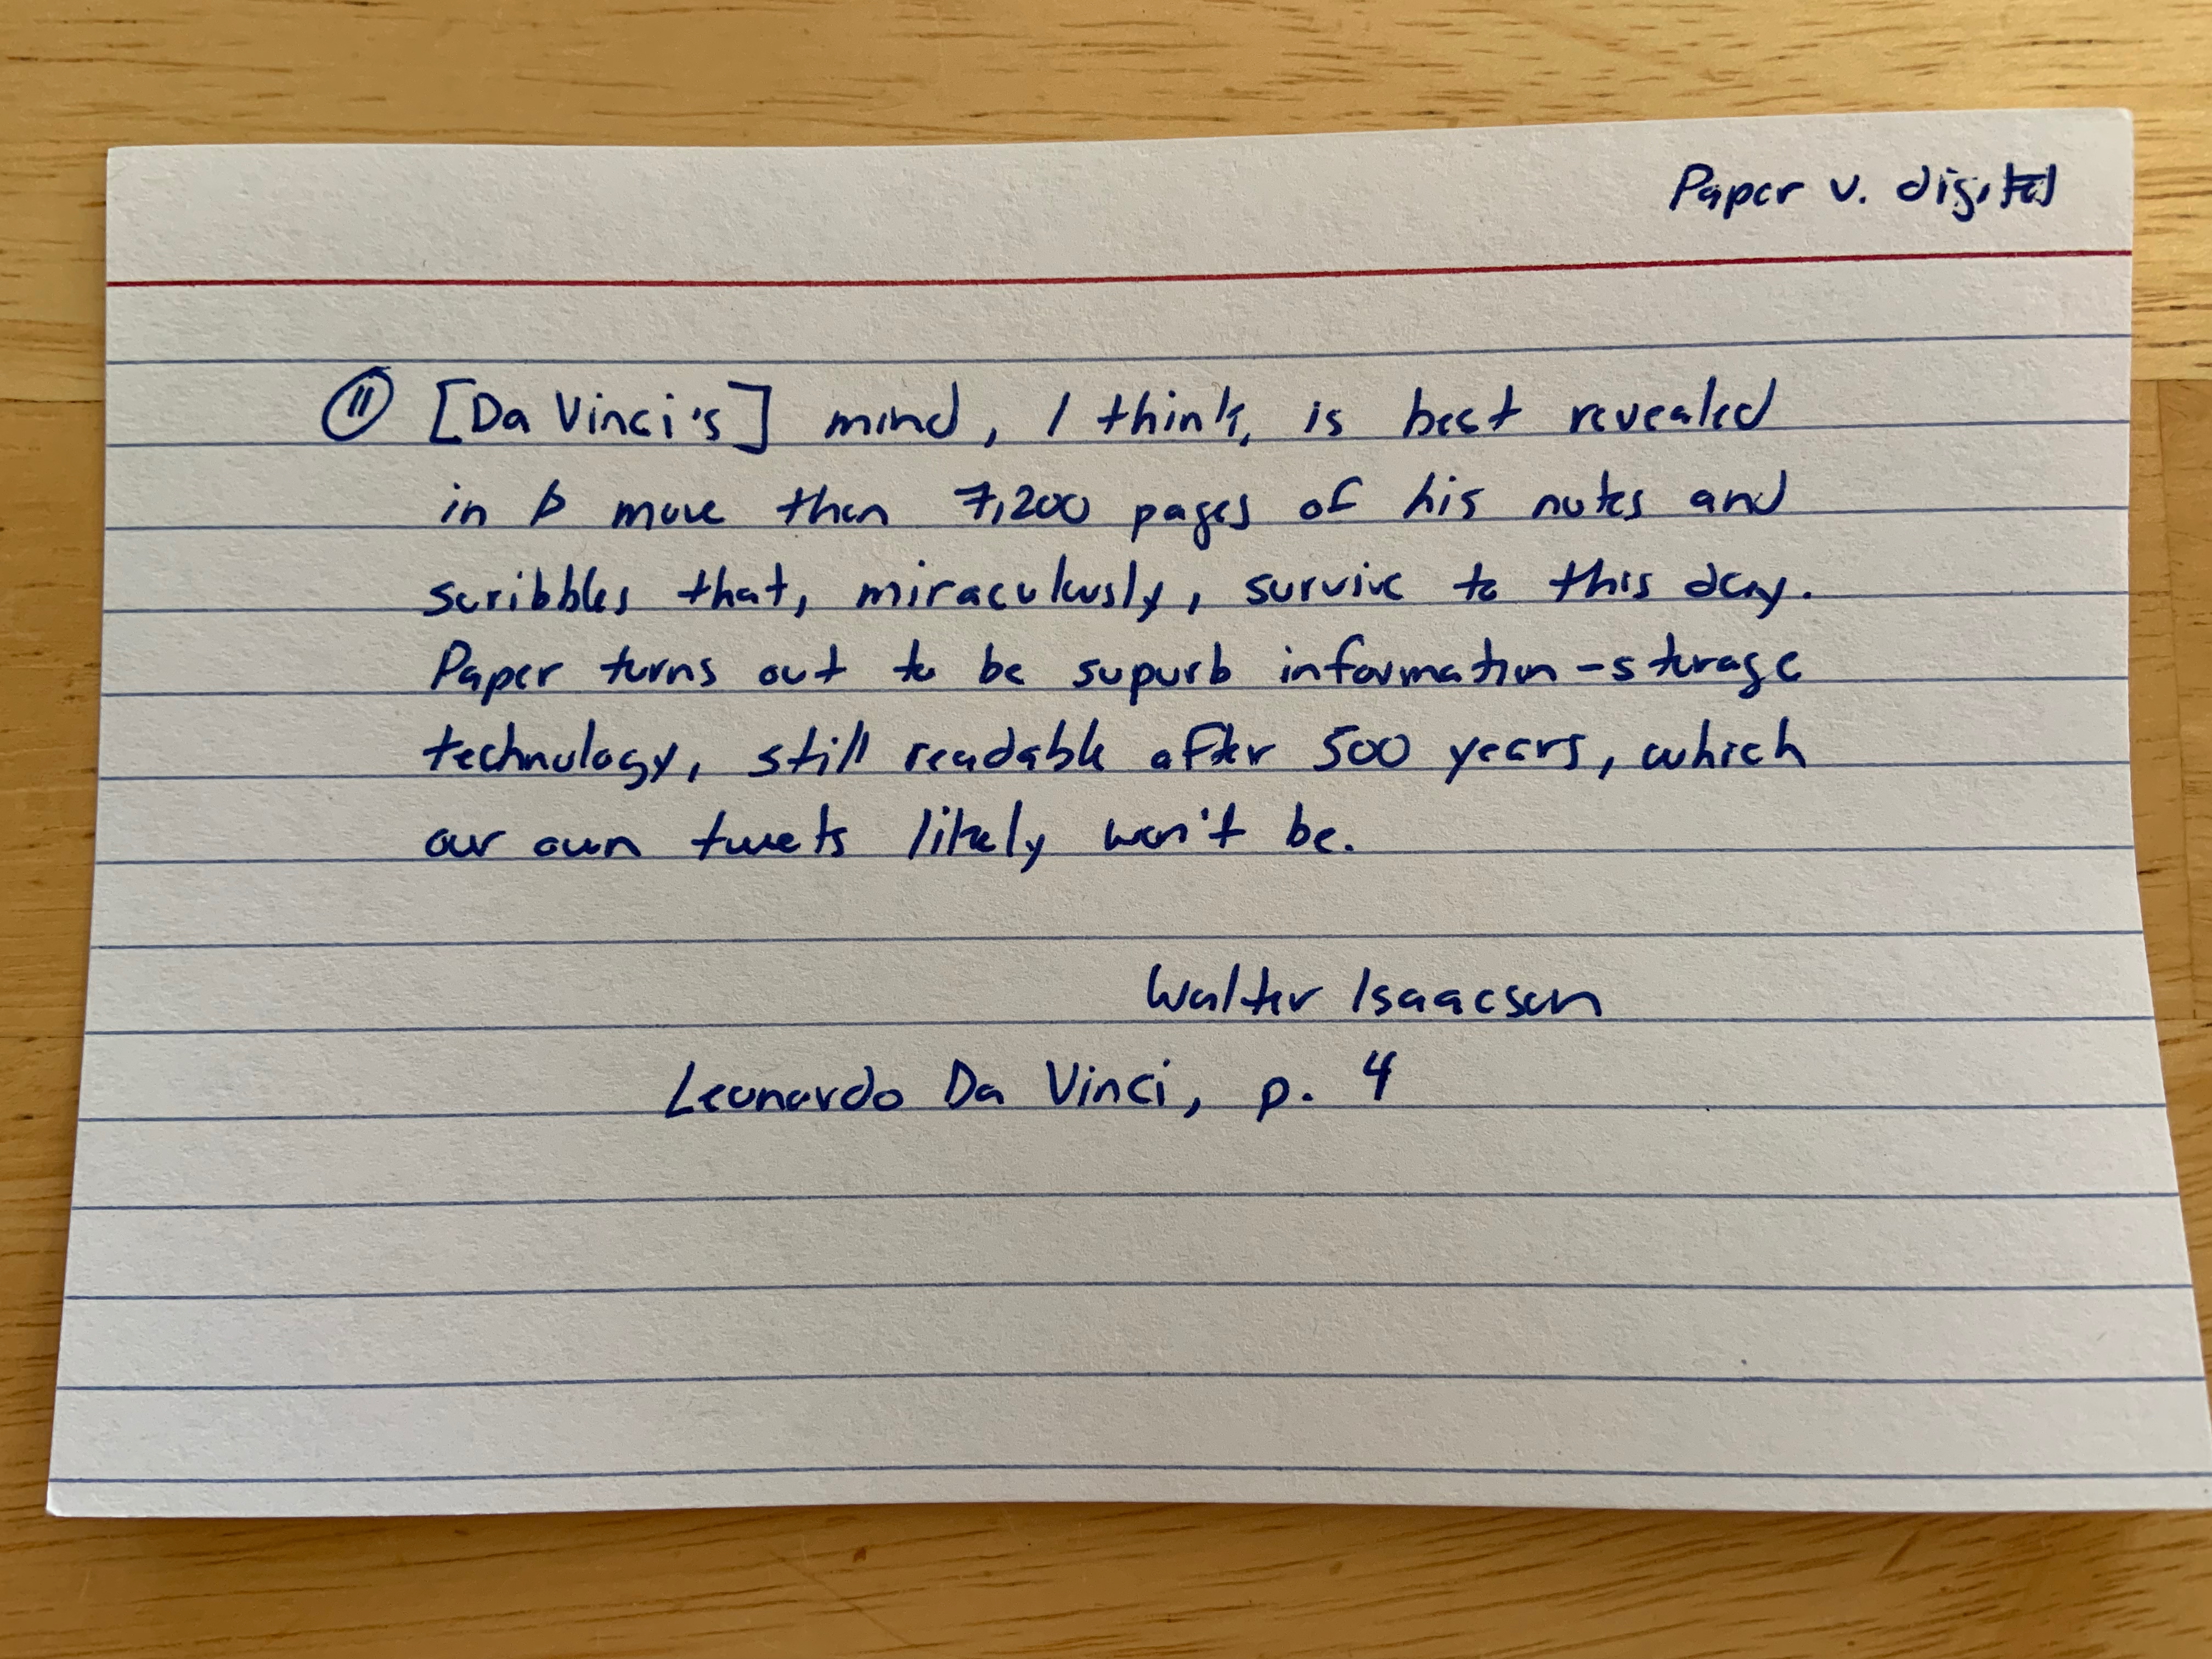 Paper v. digital
⑪ [Da Vinci's] mind, I think, is best revealed
in more than 7,200 pages of his notes and
scribbles that, miraculously, survive to this day.
Paper turns out to be supurb information-storage
technology, still readable after 500 years, which
our own tweets likely won't be.
Walter Isaacson
Leonardo Da Vinci, p. 4